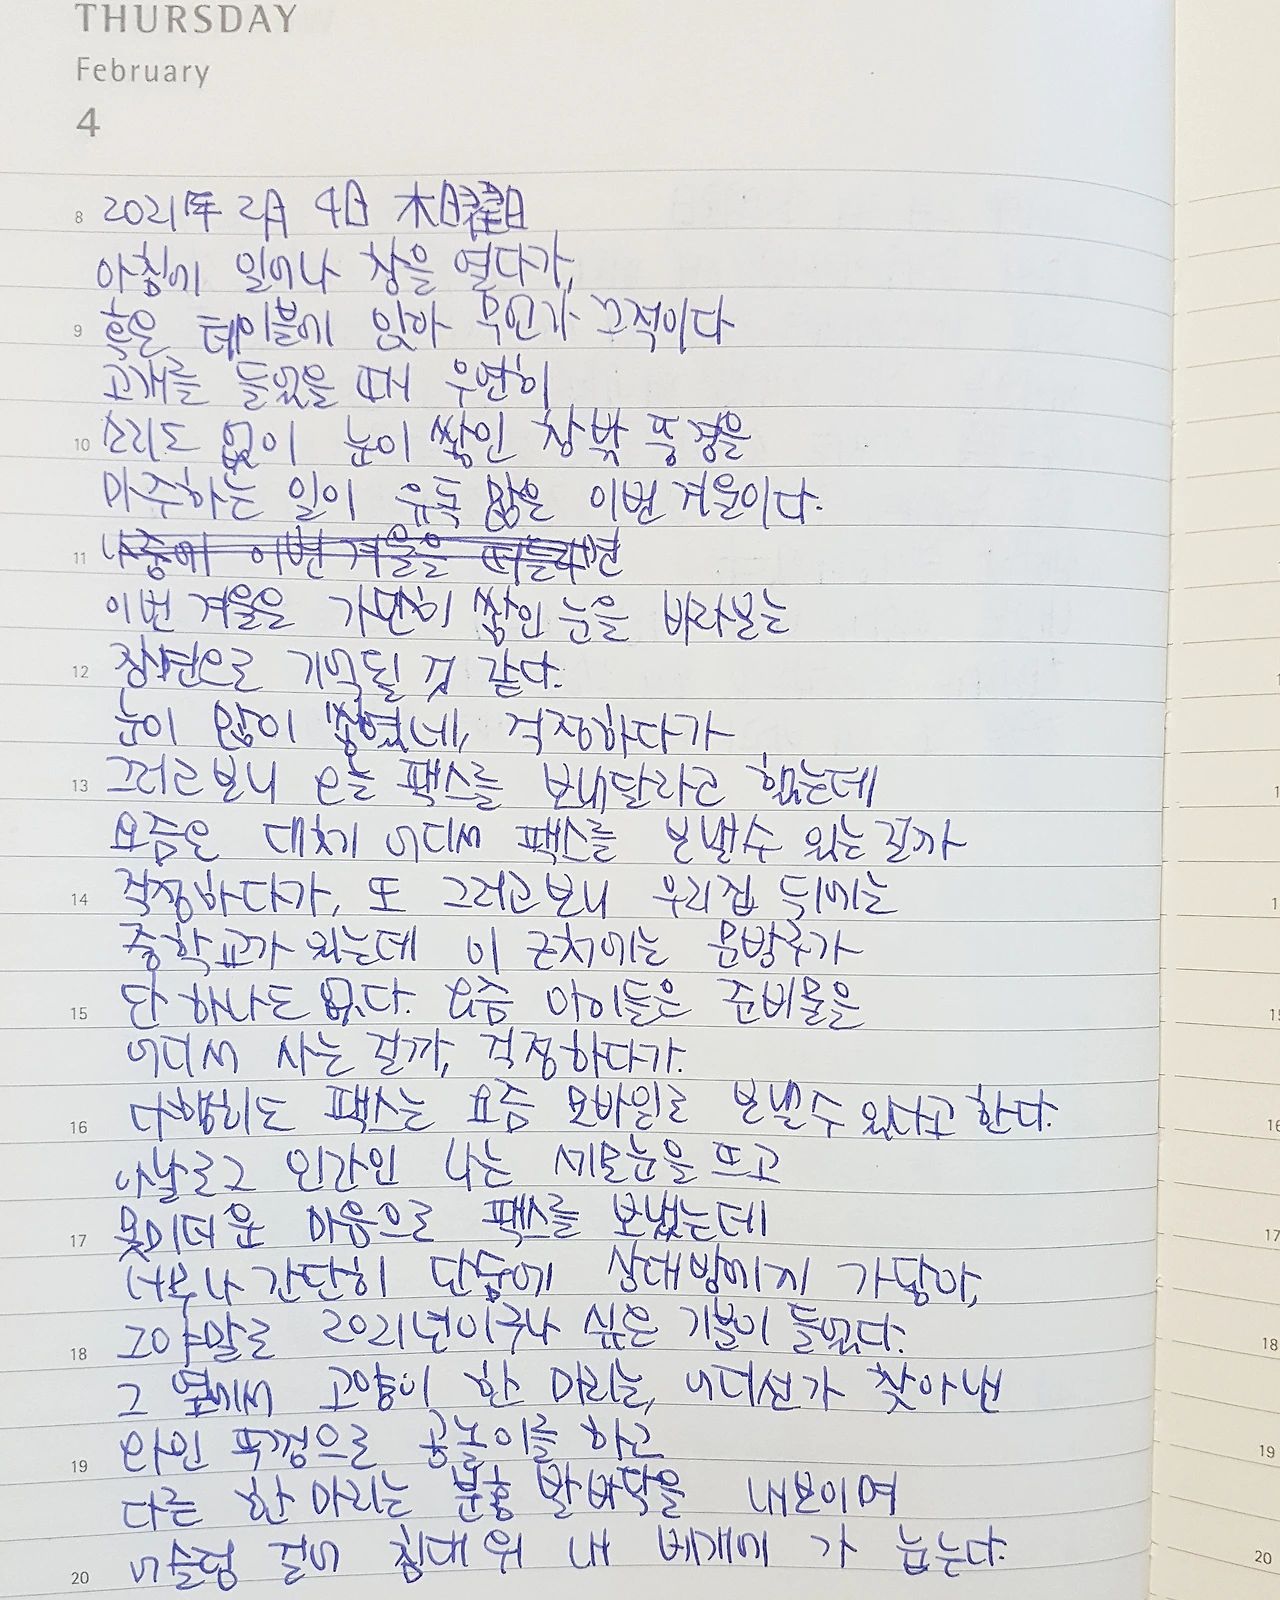 THURSDAY
February
4
8 2021年 2月 4日 木曜日
아침에 일어나 창을 열다가,
9 혹은 테이블에 앉아 무언가 끄적이다
고개를 들었을 때 우연히
10 소리도 없이 눈이 쌓인 창밖 풍경을
마주하는 일이 유독 많은 이번 겨울이다.
11 나중에 이번 겨울을 떠올리면
이번 겨울을 가만히 쌓인 눈을 바라보는
12 장면으로 기억될 것 같다.
눈이 많이 쌓였네, 걱정하다가
13 그러고보니 오늘 팩스를 보내달라고 했는데
요즘은 대체 어디서 팩스를 보낼수 있는걸까
14 걱정하다가, 또 그러고보니 우리집 뒤에는
중학교가 있는데 이 근처에는 문방구가
15 단 하나도 없다. 요즘 아이들은 준비물을
어디서 사는걸까, 걱정하다가.
16 다행히도 팩스는 요즘 모바일로 보낼수 있다고 한다.
아날로그 인간인 나는 세모눈을 뜨고
17 못미더운 마음으로 팩스를 보냈는데
너무나 간단히 단숨에 상대방에게 가닿아,
18 그야말로 2021년이구나 싶은 기분이 들었다.
그 옆에서 고양이 한 마리는, 어디선가 찾아낸
19 와인 뚜껑으로 공놀이를 하고
다른 한 마리는 분홍 발바닥을 내보이며
20 어슬렁 걸어 침대 위 내 베개에 가 눕는다.
16
17
18
19
20